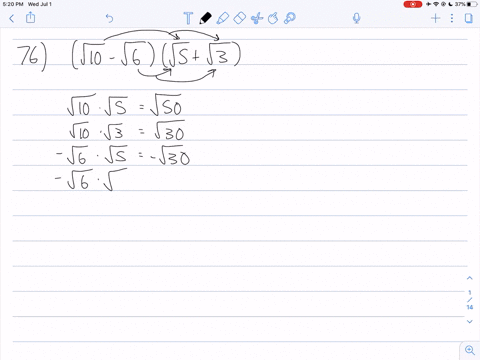 5:20 PM Wed Jul 1
37%
T
76) (√10 - √6)(√5 + √3)
√10 · √5 = √50
√10 · √3 = √30
-√6 · √5 = -√30
-√6 · √
1
/
14